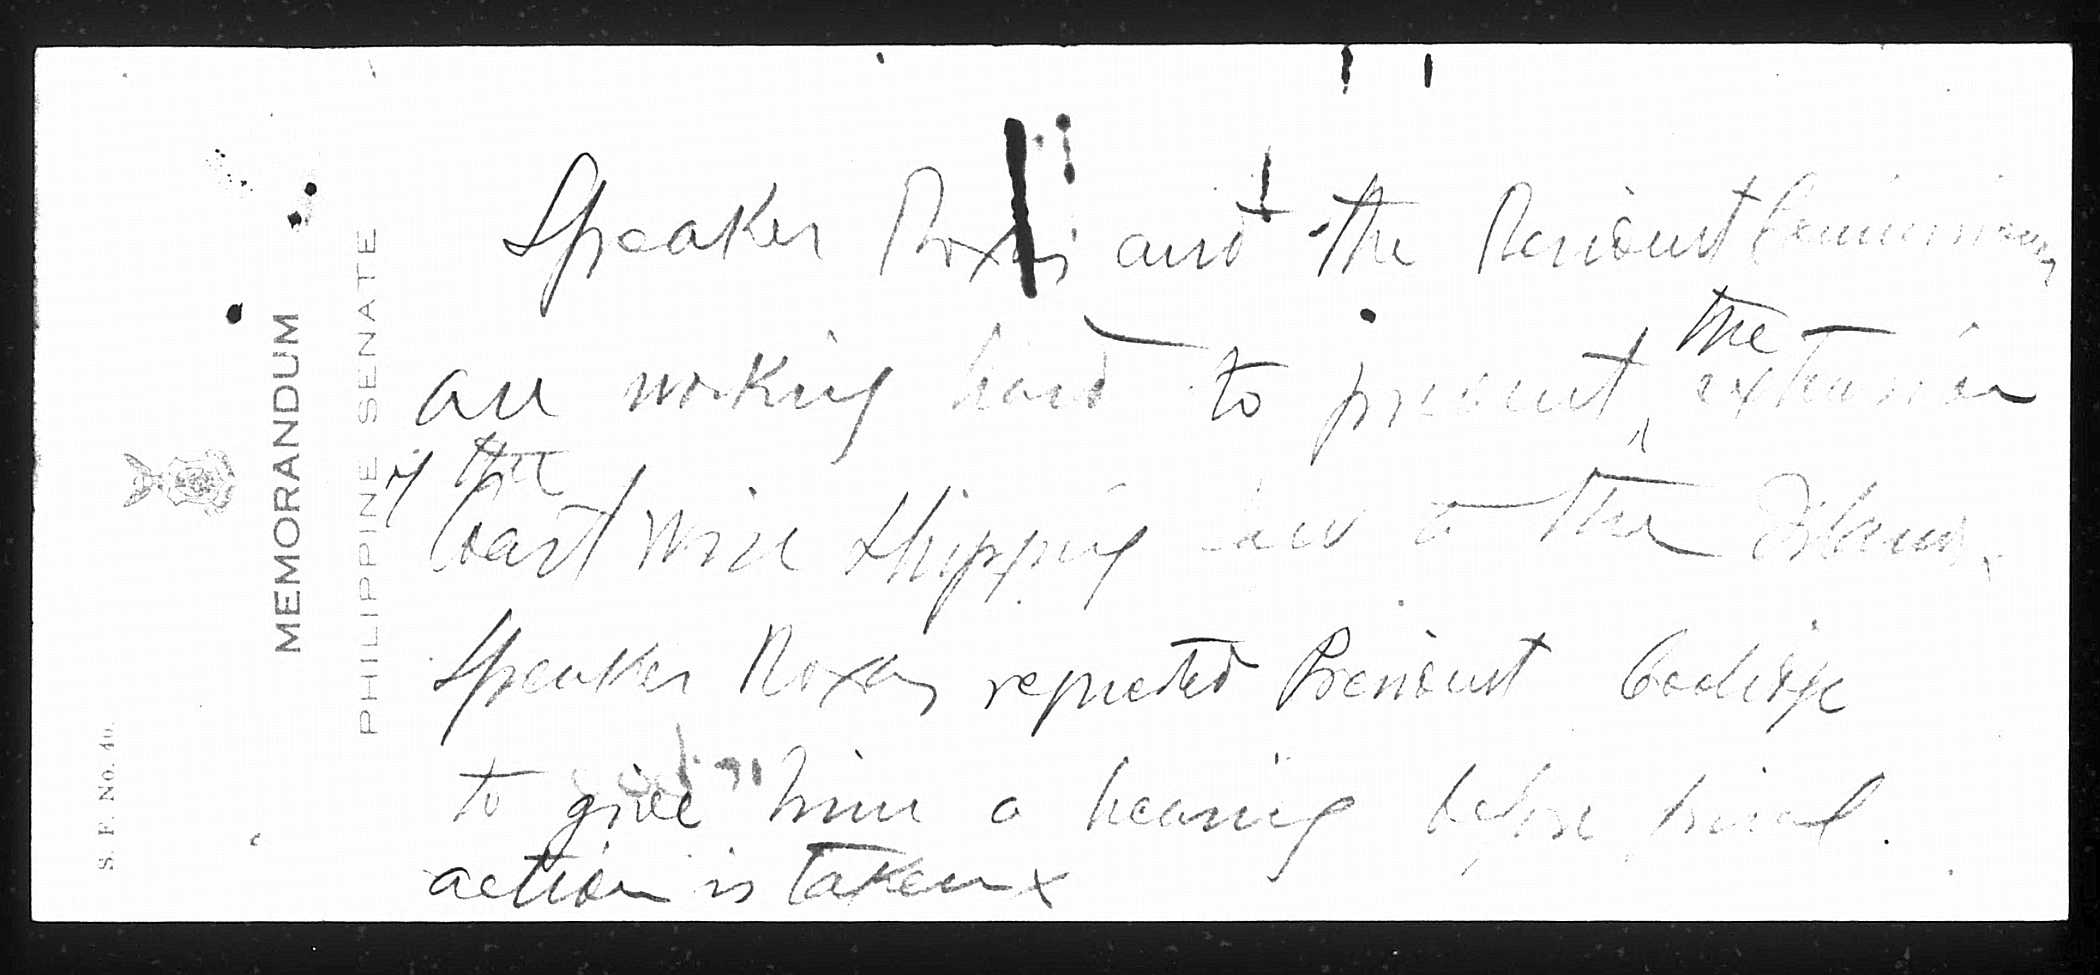 MEMORANDUM
PHILIPPINE SENATE
S. F. No. 40.
Speaker Roxas and the Resident Commissioners
are working hard to prevent the extension
of the Coast wise shipping law to the Islands.
Speaker Roxas requested President Coolidge
to give him a hearing before final
action is taken x